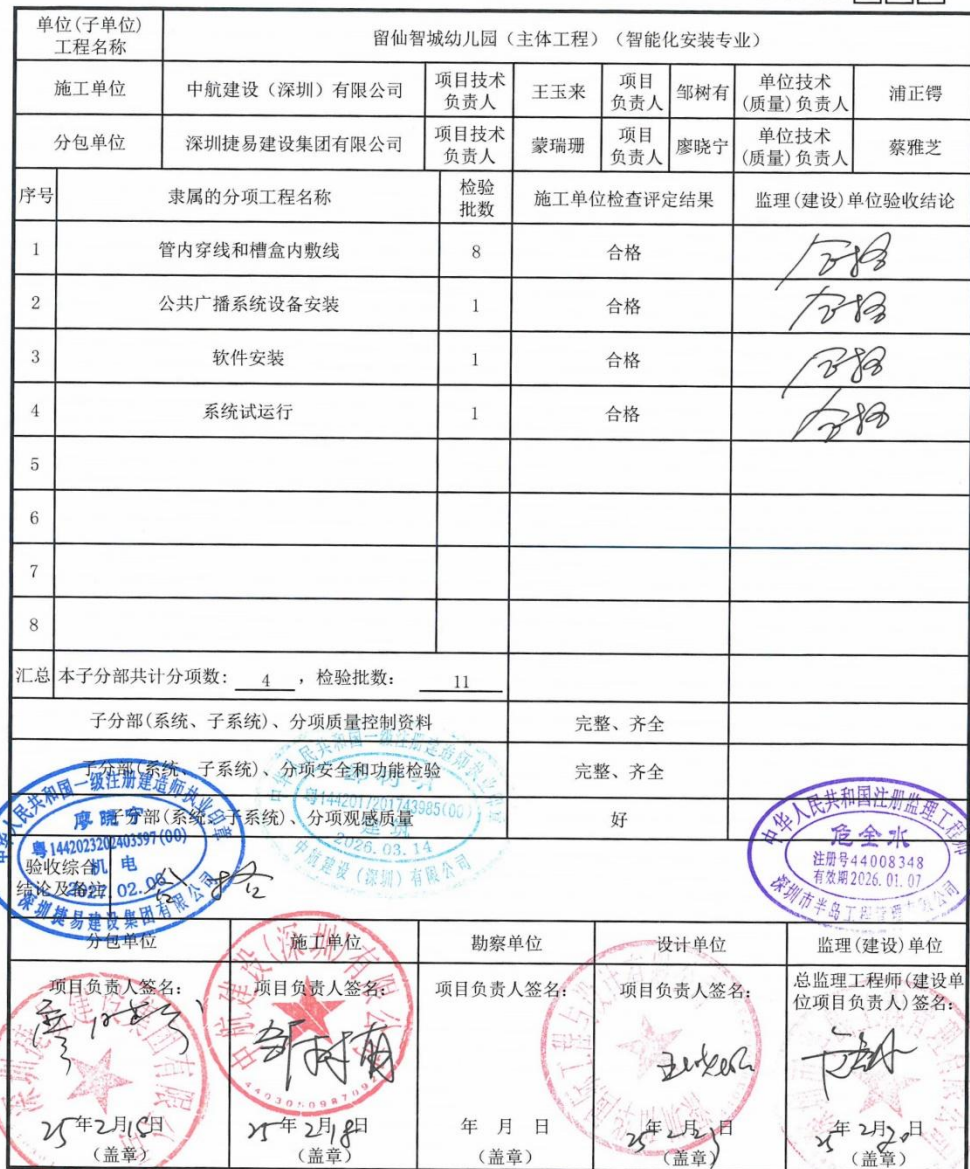 单位(子单位)
工程名称
留仙智城幼儿园（主体工程）（智能化安装专业）
施工单位
中航建设（深圳）有限公司
项目技术
负责人
王玉来
项目
负责人
邹树有
单位技术
(质量)负责人
浦正锷
分包单位
深圳捷易建设集团有限公司
项目技术
负责人
蒙瑞珊
项目
负责人
廖晓宁
单位技术
(质量)负责人
蔡雅芝
序号
隶属的分项工程名称
检验
批数
施工单位检查评定结果
监理(建设)单位验收结论
1 管内穿线和槽盒内敷线 8 合格 合格
2 公共广播系统设备安装 1 合格 合格
3 软件安装 1 合格 合格
4 系统试运行 1 合格 合格
5
6
7
8
汇总 本子分部共计分项数: 4 ，检验批数: 11
子分部(系统、子系统)、分项质量控制资料 完整、齐全
子分部(系统、子系统)、分项安全和功能检验 完整、齐全
子分部(系统、子系统)、分项观感质量 好
验收综合
结论及备注
合格
中华人民共和国一级注册建造师执业印章
廖晓宁
粤1442023202403597(00)
机电
深圳捷易建设集团有限公司
粤1442017201743985(00)
建筑
2026.03.14
中航建设（深圳）有限公司
中华人民共和国注册监理工程师
危金水
注册号44008348
有效期2026.01.07
分包单位
施工单位
勘察单位
设计单位
监理(建设)单位
项目负责人签名:
项目负责人签名:
邹树有
项目负责人签名:
项目负责人签名:
总监理工程师(建设单
位项目负责人)签名:
25年2月18日
25年2月18日
年 月 日
年2月 日
25年2月20日
(盖章)
(盖章)
(盖章)
(盖章)
(盖章)